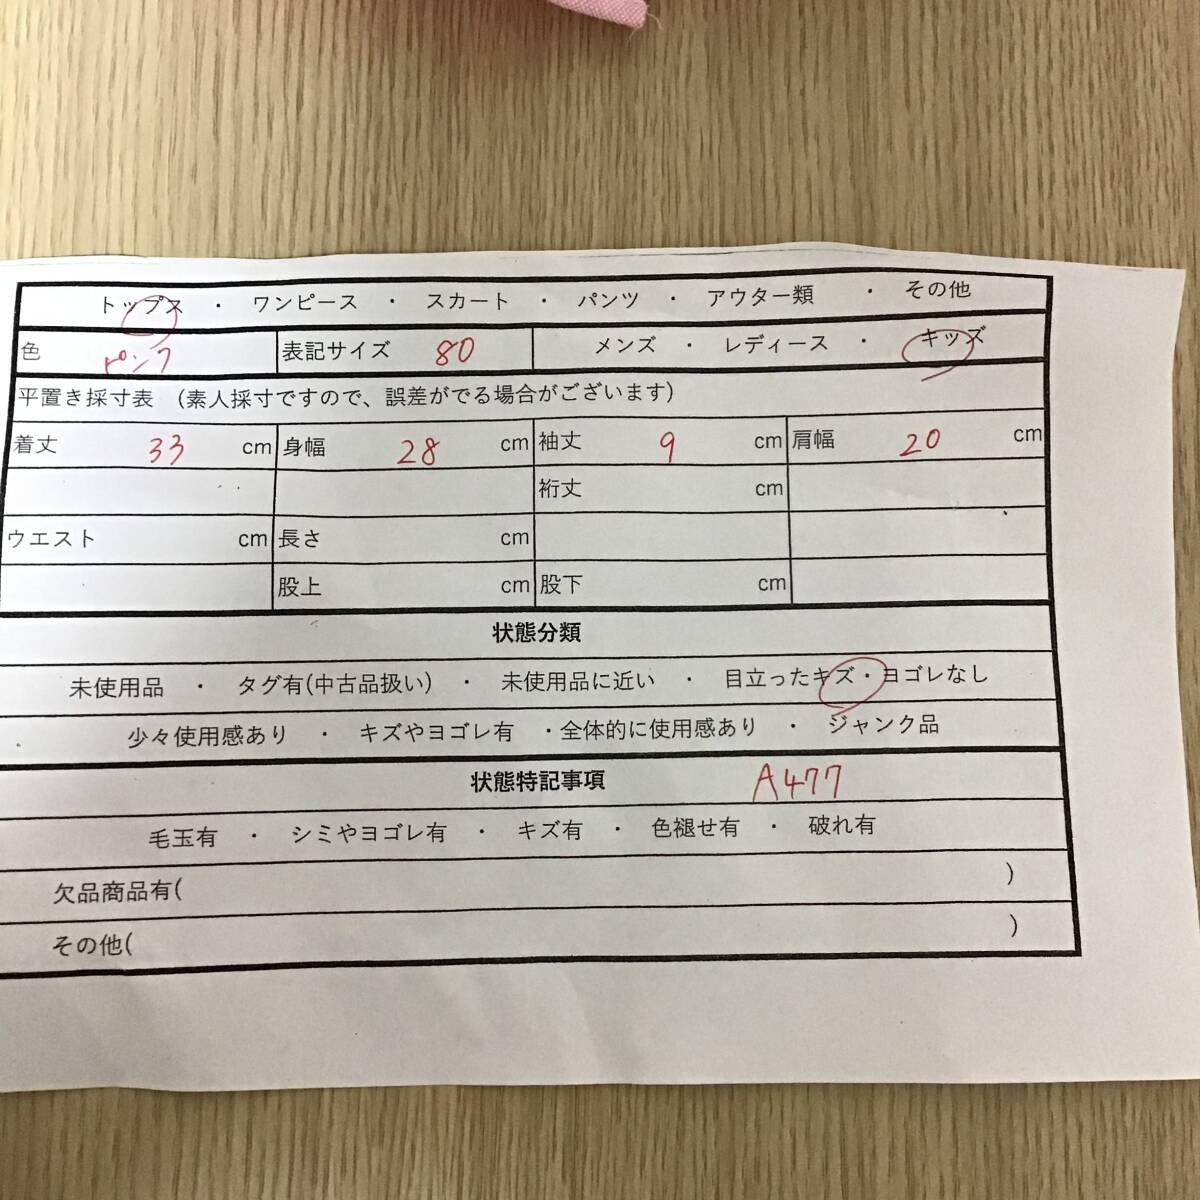 トップス ・ ワンピース ・ スカート ・ パンツ ・ アウター類 ・ その他
色 ピンク 表記サイズ 80 メンズ ・ レディース ・ キッズ
平置き採寸表 (素人採寸ですので、誤差がでる場合がございます)
着丈 33 cm 身幅 28 cm 袖丈 9 cm 肩幅 20 cm
裄丈 cm
ウエスト cm 長さ cm
股上 cm 股下 cm
状態分類
未使用品 ・ タグ有(中古品扱い) ・ 未使用品に近い ・ 目立ったキズ・ヨゴレなし
少々使用感あり ・ キズやヨゴレ有 ・全体的に使用感あり ・ ジャンク品
状態特記事項 A477
毛玉有 ・ シミやヨゴレ有 ・ キズ有 ・ 色褪せ有 ・ 破れ有
欠品商品有( )
その他( )